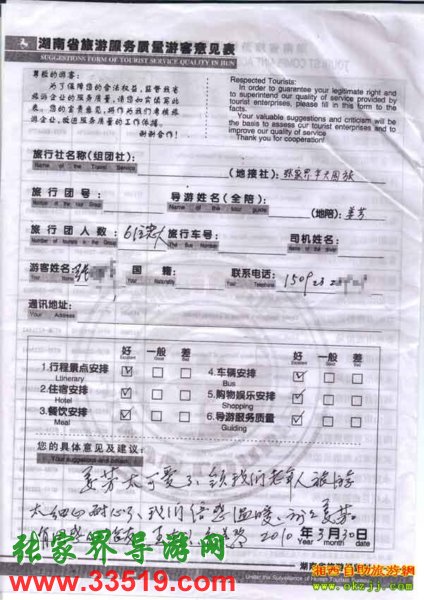 湖南省旅游服务质量游客意见表
SUGGESTIONS FORM OF TOURIST SERVICE QUALITY IN HUN
尊敬的游客：
为了保障您的合法权益，监督我省
旅游企业的服务质量，请您如实填写此
表。您的宝贵意见，将作为我们考核旅
游企业，改进服务质量的工作依据。
谢谢合作！
Respected Tourists:
In order to guarantee your legitimate right and
to superintend our quality of service provided by
tourist enterprises, please fill in this form to the
facts.
Your valuable suggestions and criticism will be
the basis to assure our tourist enterprises and to
improve our quality of service!
Thank you for cooperation!
旅行社名称(组团社)：
Name of the Travel Service
(地接社)：张家界中大国旅
旅行团号：
Number of the tour Group
导游姓名(全陪)：
Name of the tour guide
(地陪)：姜芳
旅行团人数：6位老人
Number of tourists in the Group
旅行车号：
The Bus Number
司机姓名：
Name of the driver
游客姓名：张
Your Name
国籍：
Your Nationality
联系电话：1509
Your Telephone
通讯地址：
Your Address
好 一般 差
Excellent Good Bad
好 一般 差
Excellent Good Bad
1.行程景点安排
Litinerary
2.住宿安排
Hotel
3.餐饮安排
Meal
4.车辆安排
Bus
5.购物娱乐安排
Shopping
6.导游服务质量
Guiding
您的具体意见及建议：
Your suggestions and advice
姜芳太可爱了，领我们老年人旅游
太细心耐心了，我们倍感温暖，
2010年3月30日
Year month Date
张家界导游网
www.33519.com
湖南省旅游
Under the Surveillance of Hunan Tourism Bureau
湘西自助旅游网
www.okzjj.com